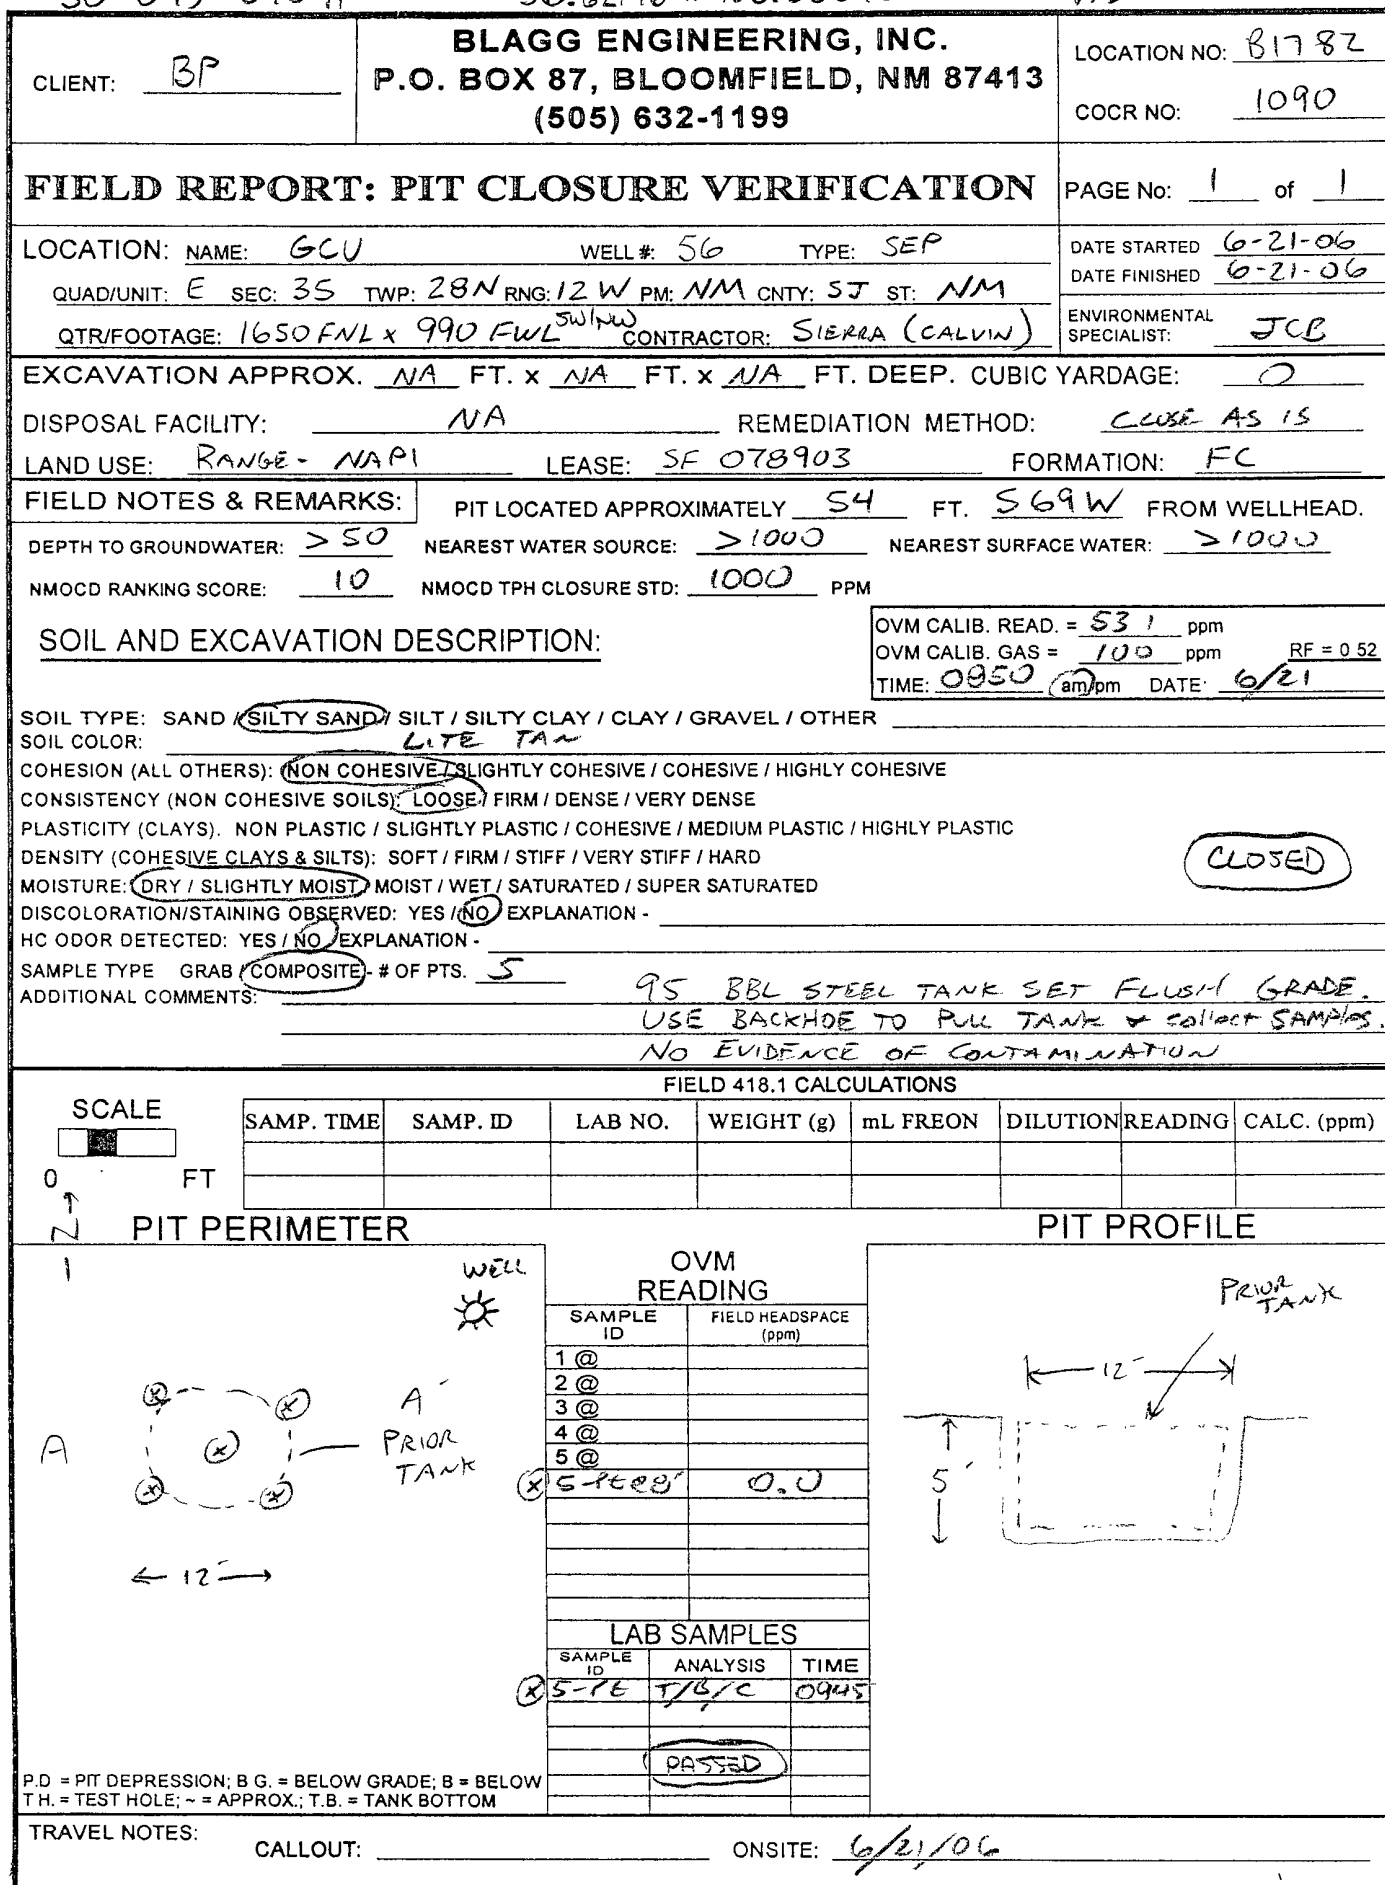 BLAGG ENGINEERING, INC.
P.O. BOX 87, BLOOMFIELD, NM 87413
(505) 632-1199
CLIENT: BP
LOCATION NO: B1782
COCR NO: 1090
FIELD REPORT: PIT CLOSURE VERIFICATION
PAGE No: 1 of 1
LOCATION: NAME: GCU WELL #: 56 TYPE: SEP
QUAD/UNIT: E SEC: 35 TWP: 28N RNG: 12W PM: NM CNTY: SJ ST: NM
QTR/FOOTAGE: 1650 FNL x 990 FWL SW/NW CONTRACTOR: SIERRA (CALVIN)
DATE STARTED 6-21-06
DATE FINISHED 6-21-06
ENVIRONMENTAL
SPECIALIST: JCB
EXCAVATION APPROX. NA FT. x NA FT. x NA FT. DEEP. CUBIC YARDAGE: 0
DISPOSAL FACILITY: NA REMEDIATION METHOD: CLOSE AS IS
LAND USE: RANGE - NAPI LEASE: SF 078903 FORMATION: FC
FIELD NOTES & REMARKS: PIT LOCATED APPROXIMATELY 54 FT. S69W FROM WELLHEAD.
DEPTH TO GROUNDWATER: >50 NEAREST WATER SOURCE: >1000 NEAREST SURFACE WATER: >1000
NMOCD RANKING SCORE: 10 NMOCD TPH CLOSURE STD: 1000 PPM
SOIL AND EXCAVATION DESCRIPTION:
OVM CALIB. READ. = 53.1 ppm
OVM CALIB. GAS = 100 ppm RF = 0 52
TIME: 0850 am/pm DATE: 6/21
SOIL TYPE: SAND / SILTY SAND / SILT / SILTY CLAY / CLAY / GRAVEL / OTHER
SOIL COLOR: LITE TAN
COHESION (ALL OTHERS): NON COHESIVE / SLIGHTLY COHESIVE / COHESIVE / HIGHLY COHESIVE
CONSISTENCY (NON COHESIVE SOILS): LOOSE / FIRM / DENSE / VERY DENSE
PLASTICITY (CLAYS). NON PLASTIC / SLIGHTLY PLASTIC / COHESIVE / MEDIUM PLASTIC / HIGHLY PLASTIC
DENSITY (COHESIVE CLAYS & SILTS): SOFT / FIRM / STIFF / VERY STIFF / HARD
CLOSED
MOISTURE: DRY / SLIGHTLY MOIST / MOIST / WET / SATURATED / SUPER SATURATED
DISCOLORATION/STAINING OBSERVED: YES / NO EXPLANATION -
HC ODOR DETECTED: YES / NO EXPLANATION -
SAMPLE TYPE GRAB / COMPOSITE - # OF PTS. 5
ADDITIONAL COMMENTS: 95 BBL STEEL TANK SET FLUSH GRADE.
USE BACKHOE TO PULL TANK & collect SAMPles.
NO EVIDENCE OF CONTAMINATION
FIELD 418.1 CALCULATIONS
SCALE
0 FT
SAMP. TIME SAMP. ID LAB NO. WEIGHT (g) mL FREON DILUTION READING CALC. (ppm)
N
PIT PERIMETER
PIT PROFILE
WELL
A
A'
PRIOR
TANK
12'
OVM
READING
SAMPLE
ID
FIELD HEADSPACE
(ppm)
1 @
2 @
3 @
4 @
5 @
5-Pt @ 8' 0.0
PRIOR
TANK
12'
5'
LAB SAMPLES
SAMPLE
ID
ANALYSIS TIME
5-Pt T/B/C 0945
PASSED
P.D = PIT DEPRESSION; B G. = BELOW GRADE; B = BELOW
T H. = TEST HOLE; ~ = APPROX.; T.B. = TANK BOTTOM
TRAVEL NOTES:
CALLOUT: ONSITE: 6/21/06